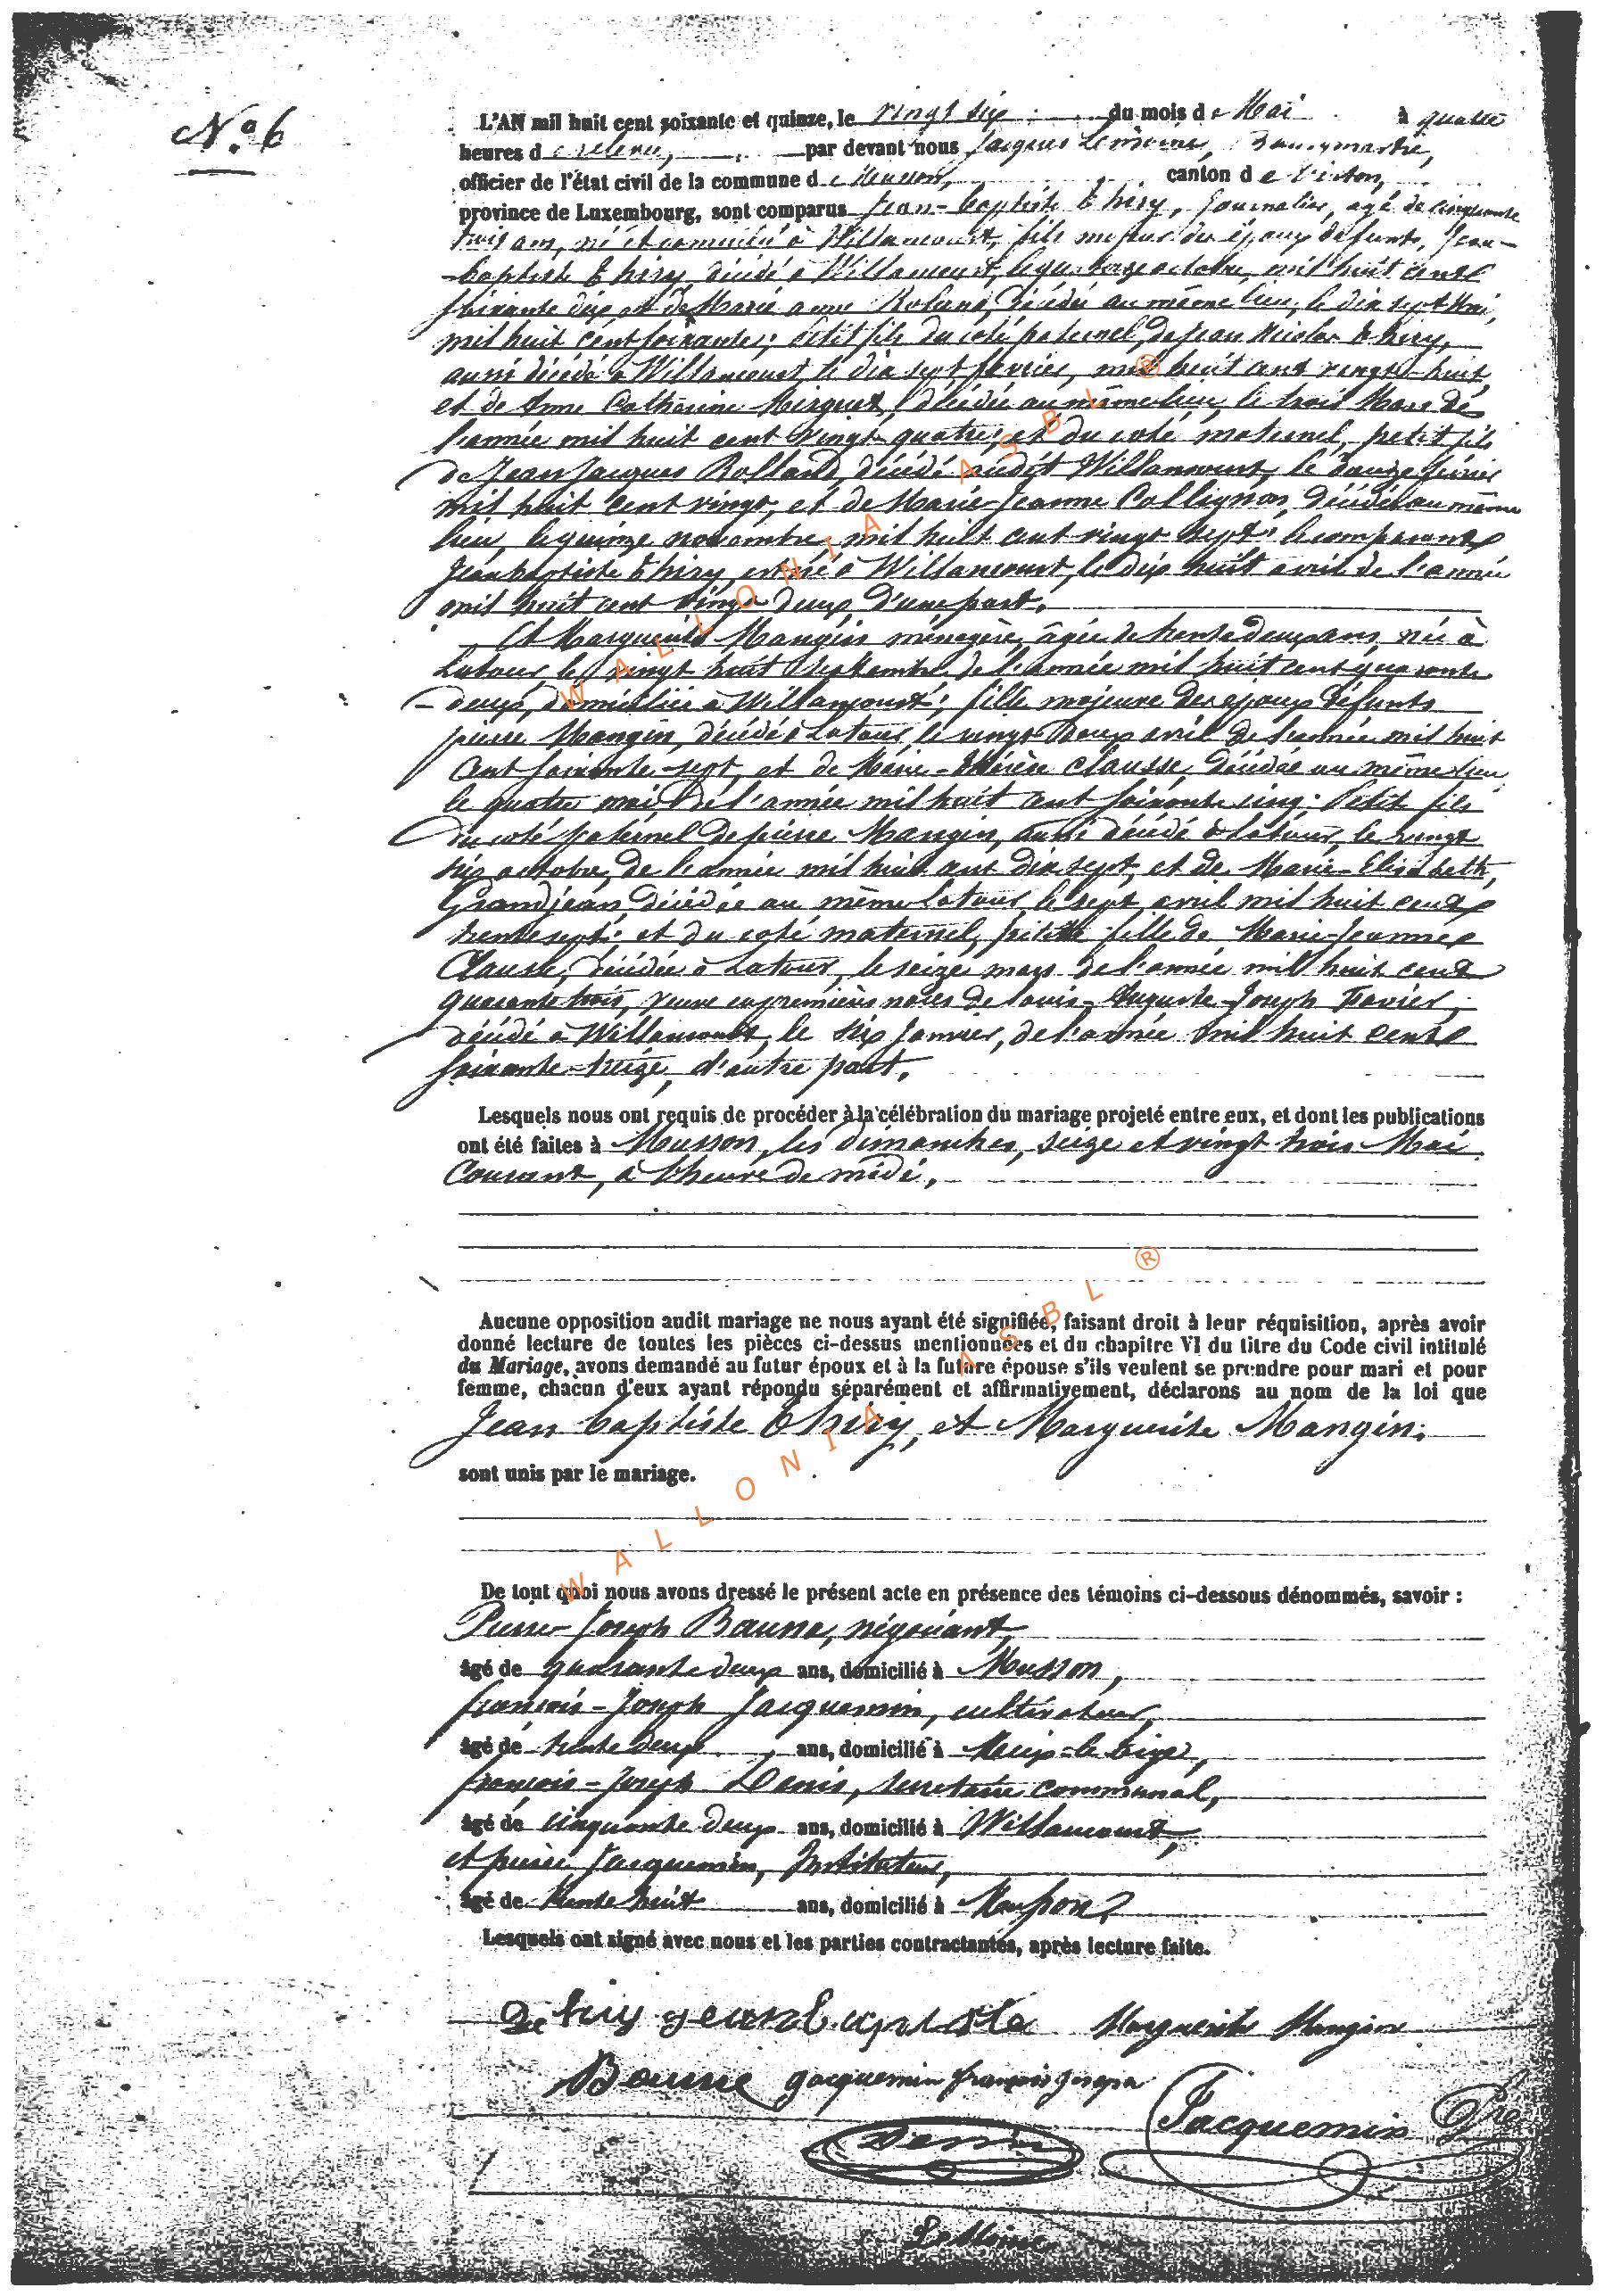 N° 6
L'AN mil huit cent soixante et quinze, le vingt six du mois de Mai à quatre
heures de relevée, par devant nous Jacques Lemoine, Bourgmestre,
officier de l'état civil de la commune de Musson, canton de Virton,
province de Luxembourg, sont comparus Jean-baptiste Thiry, Journalier, agé de cinquante
trois ans, né et domicilié à Willancourt, fils majeur des époux défunts, Jean-
-baptiste Thiry, décédé à Willancourt, le quatorze octobre, mil huit cent
soixante dix et de Marie anne Roland, décédée au même lieu, le dix sept Mai,
mil huit cent soixante; petit fils du coté paternel, de Jean Nicolas Thiry,
aussi décédé à Willancourt, le dix sept février, mil huit cent vingt-huit,
et de Anne Catherine décédée au même lieu, le trois Mars de
l'année mil huit cent vingt-quatre; et du coté maternel, petit fils
de Jean Jacques Rolland, décédé audit Willancourt, le douze février
mil huit cent vingt, et de Marie-Jeanne Collignon, décédée au même
lieu, le quinze novembre mil huit cent vingt sept; le comparant
Jean baptiste Thiry, est né à Willancourt, le dix huit avril de l'année
mil huit cent vingt deux, d'une part.
Et Marguerite Mangin ménagère, âgée de trente deux ans, née à
Latour, le vingt huit Septembre de l'année mil huit cent quarante
-deux, domiciliée à Willancourt; fille majeure des époux défunts
pierre Mangin, décédé à Latour, le vingt deux avril de l'année mil huit
cent soixante-sept, et de Marie-Thérèse Clausse, décédée au même lieu
le quatre mai de l'année mil huit cent soixante cinq; Petit fils
du coté paternel de pierre Mangin, aussi décédé à Latour, le vingt
six octobre, de l'année mil huit cent dix sept, et de Marie-Elisabeth,
Grandjean, décédée au même Latour, le sept avril mil huit cent
trente sept; et du coté maternel, petite fille de Marie-Jeanne
Clausse, décédée à Latour, le seize mars de l'année mil huit cent
quarante trois, veuve en premières noces de Louis-Auguste-Joseph Favier,
décédé à Willancourt, le six Janvier, de l'année mil huit cent
soixante-treize, d'autre part.
Lesquels nous ont requis de procéder à la célébration du mariage projeté entre eux, et dont les publications
ont été faites à Musson, les dimanches, seize et vingt trois Mai
Courant, à l'heure de midi.
Aucune opposition audit mariage ne nous ayant été signifiée, faisant droit à leur réquisition, après avoir
donné lecture de toutes les pièces ci-dessus mentionnées et du chapitre VI du titre du Code civil intitulé
du Mariage, avons demandé au futur époux et à la future épouse s'ils veulent se prendre pour mari et pour
femme, chacun d'eux ayant répondu séparément et affirmativement, déclarons au nom de la loi que
Jean baptiste Thiry, et Marguerite Mangin,
sont unis par le mariage.
De tout quoi nous avons dressé le présent acte en présence des témoins ci-dessous dénommés, savoir :
Pierre Joseph Baune, négociant,
âgé de quarante deux ans, domicilié à Musson,
françois-Joseph Jacquemin, cultivateur,
âgé de trente deux ans, domicilié à Meix-le tige,
françois-Joseph Denis, secrétaire communal,
âgé de cinquante deux ans, domicilié à Willancourt,
et pierre Jacquemin, Instituteur,
âgé de trente huit ans, domicilié à Musson.
Lesquels ont signé avec nous et les parties contractantes, après lecture faite.
thiry jeanbaptiste Marguerite Mangin
Baune jacquemin françois joseph
Jacquemin Pre
Denis
LeMoine
WALLONIA ASBL ®
WALLONIA ASBL ®